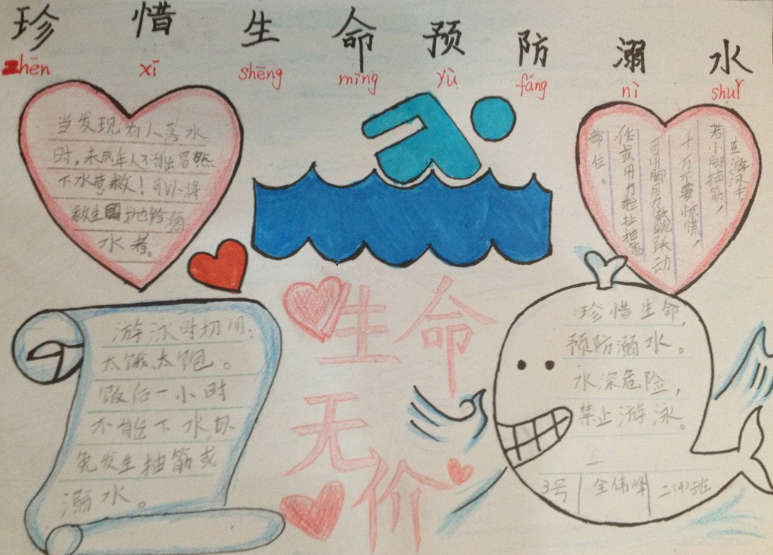 珍惜生命预防溺水
zhēn xī shēng mìng yù fáng nì shuǐ
当发现为人落水
时,未成年人不能冒然
下水营救!可以将
救生圈抛给溺
水者。
在游泳中
若小脚抽筋,
千万不要惊慌,
可用脚用力蹬跳跃动
作或用力拉扯抽筋
部位。
生命
无价
游泳时切勿
太饿太饱。
饭后一小时
不能下水,以
免发生抽筋或
溺水。
珍惜生命
预防溺水。
水深危险,
禁止游泳。
3号 全伟峰 二(4)班